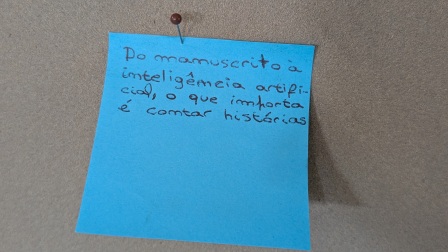 Do manuscrito à
inteligência artifi-
cial, o que importa
é contar histórias